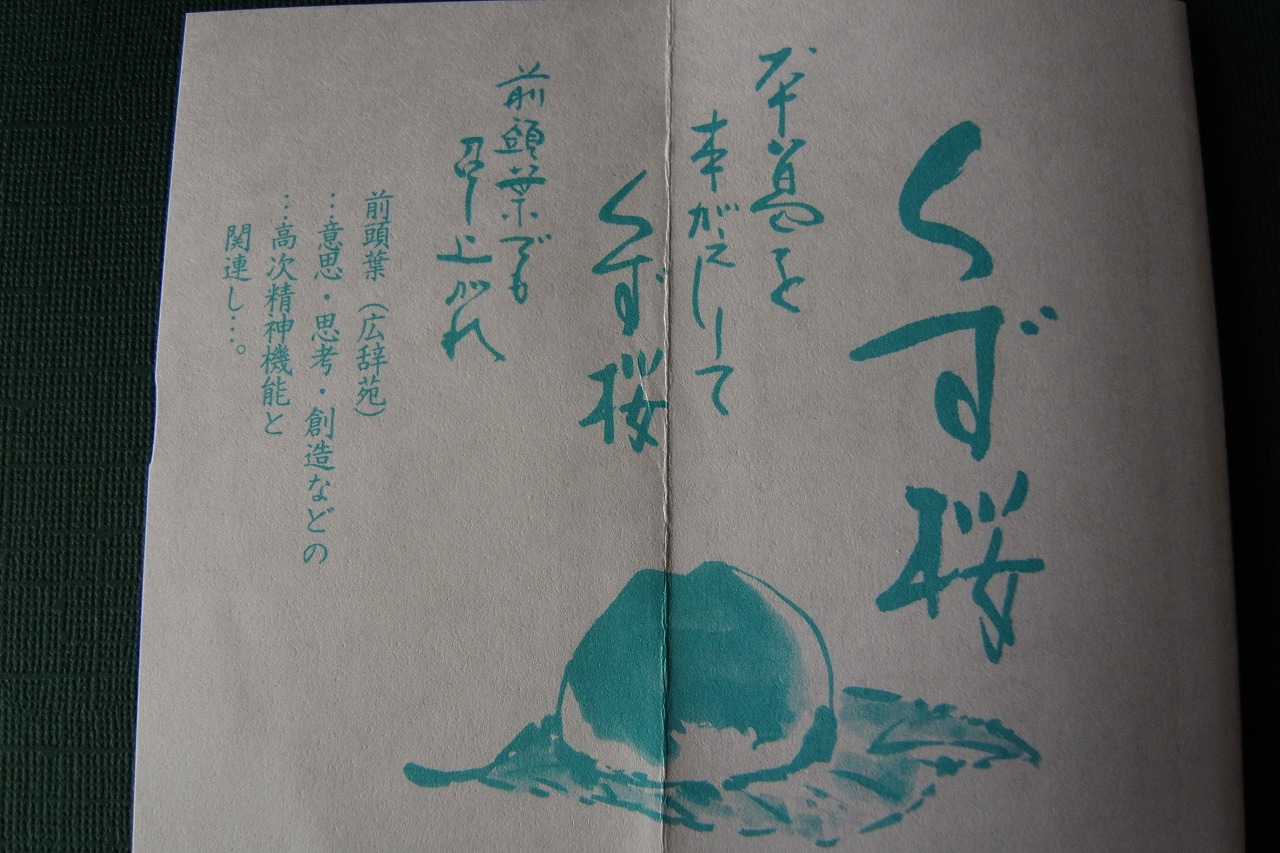 くず桜
本葛を
本がえしして
くず桜
前頭葉でも
召し上がれ
前頭葉（広辞苑）
…意思・思考・創造などの
…高次精神機能と
関連し…。